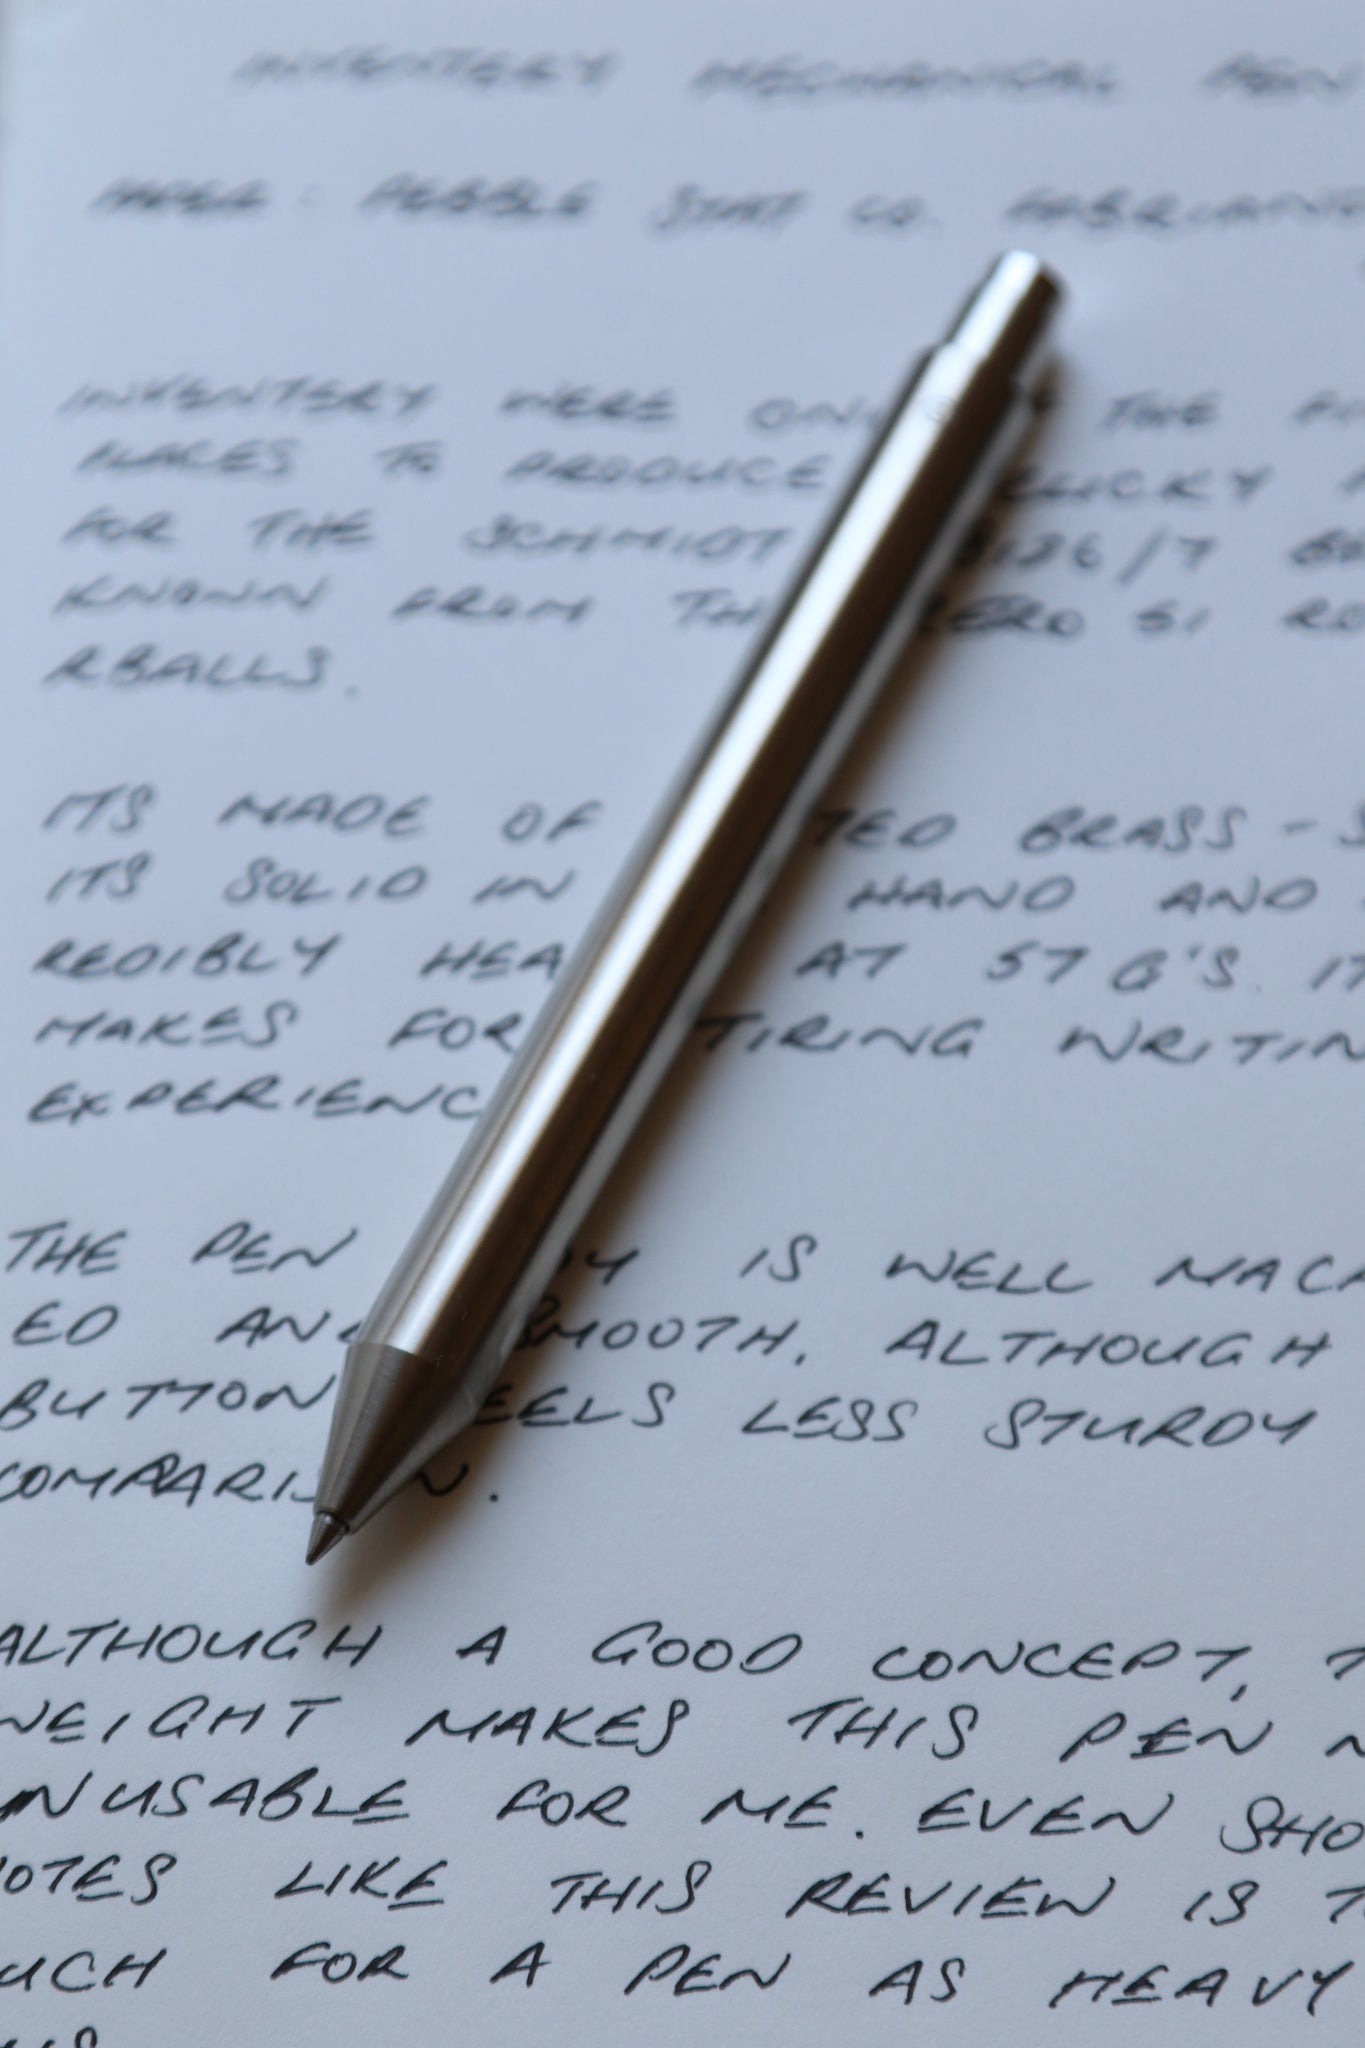 INVENTERY MECHANICAL PEN
PAPER : PEBBLE STAT CO. FABRIANO
INVENTERY WERE ON THE FI
PLACES TO PRODUCE CLICKY
FOR THE SCHMIDT 8126/7
KNOWN FROM TH RETRO 51 RO
RBALLS.
ITS MADE OF TED BRASS - S
ITS SOLID IN HAND AND
REDIBLY HEA AT 57 G'S. IT
MAKES FOR TIRING WRITIN
EXPERIENC
THE PEN DY IS WELL MACH
ED AND SMOOTH. ALTHOUGH
BUTTON EELS LESS STURDY
COMPARIS N.
ALTHOUGH A GOOD CONCEPT, T
WEIGHT MAKES THIS PEN N
UNUSABLE FOR ME. EVEN SHO
NOTES LIKE THIS REVIEW IS T
UCH FOR A PEN AS HEAVY